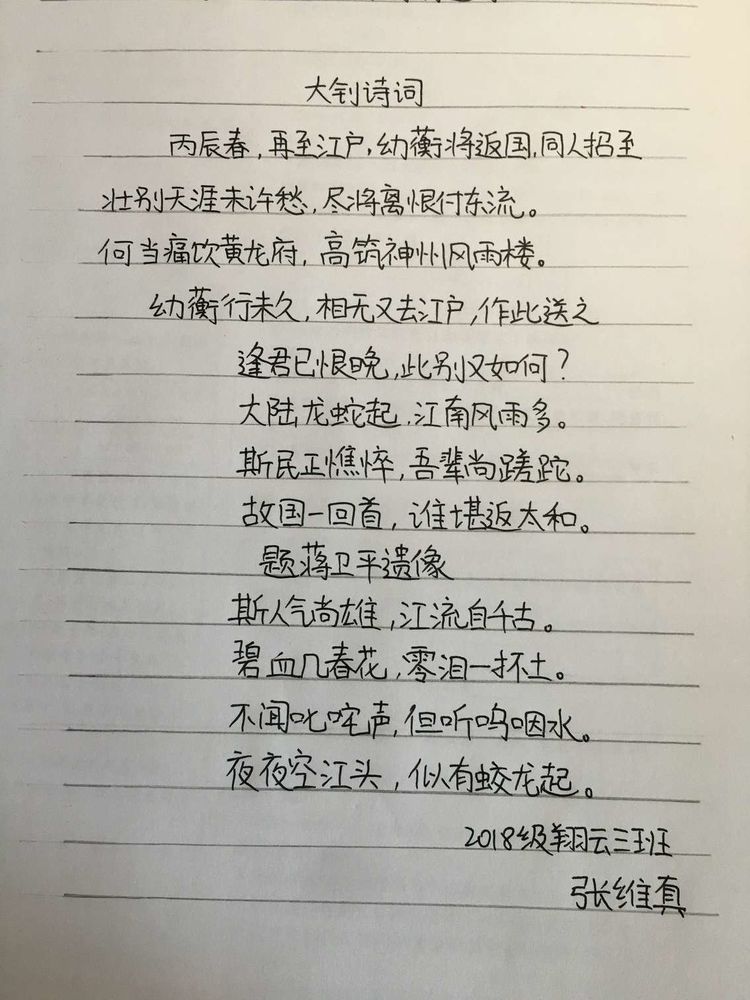 大钊诗词
丙辰春,再至江户,幼蘅将返国,同人招至
壮别天涯未许愁,尽将离恨付东流。
何当痛饮黄龙府,高筑神州风雨楼。
幼蘅行未久,相无又去江户,作此送之
逢君已恨晚,此别又如何?
大陆龙蛇起,江南风雨多。
斯民正憔悴,吾辈尚蹉跎。
故国一回首,谁堪返太和。
题蒋卫平遗像
斯人气尚雄,江流自千古。
碧血几春花,零泪一抔土。
不闻叱咤声,但听呜咽水。
夜夜空江头,似有蛟龙起。
2018级翔云三班
张维真